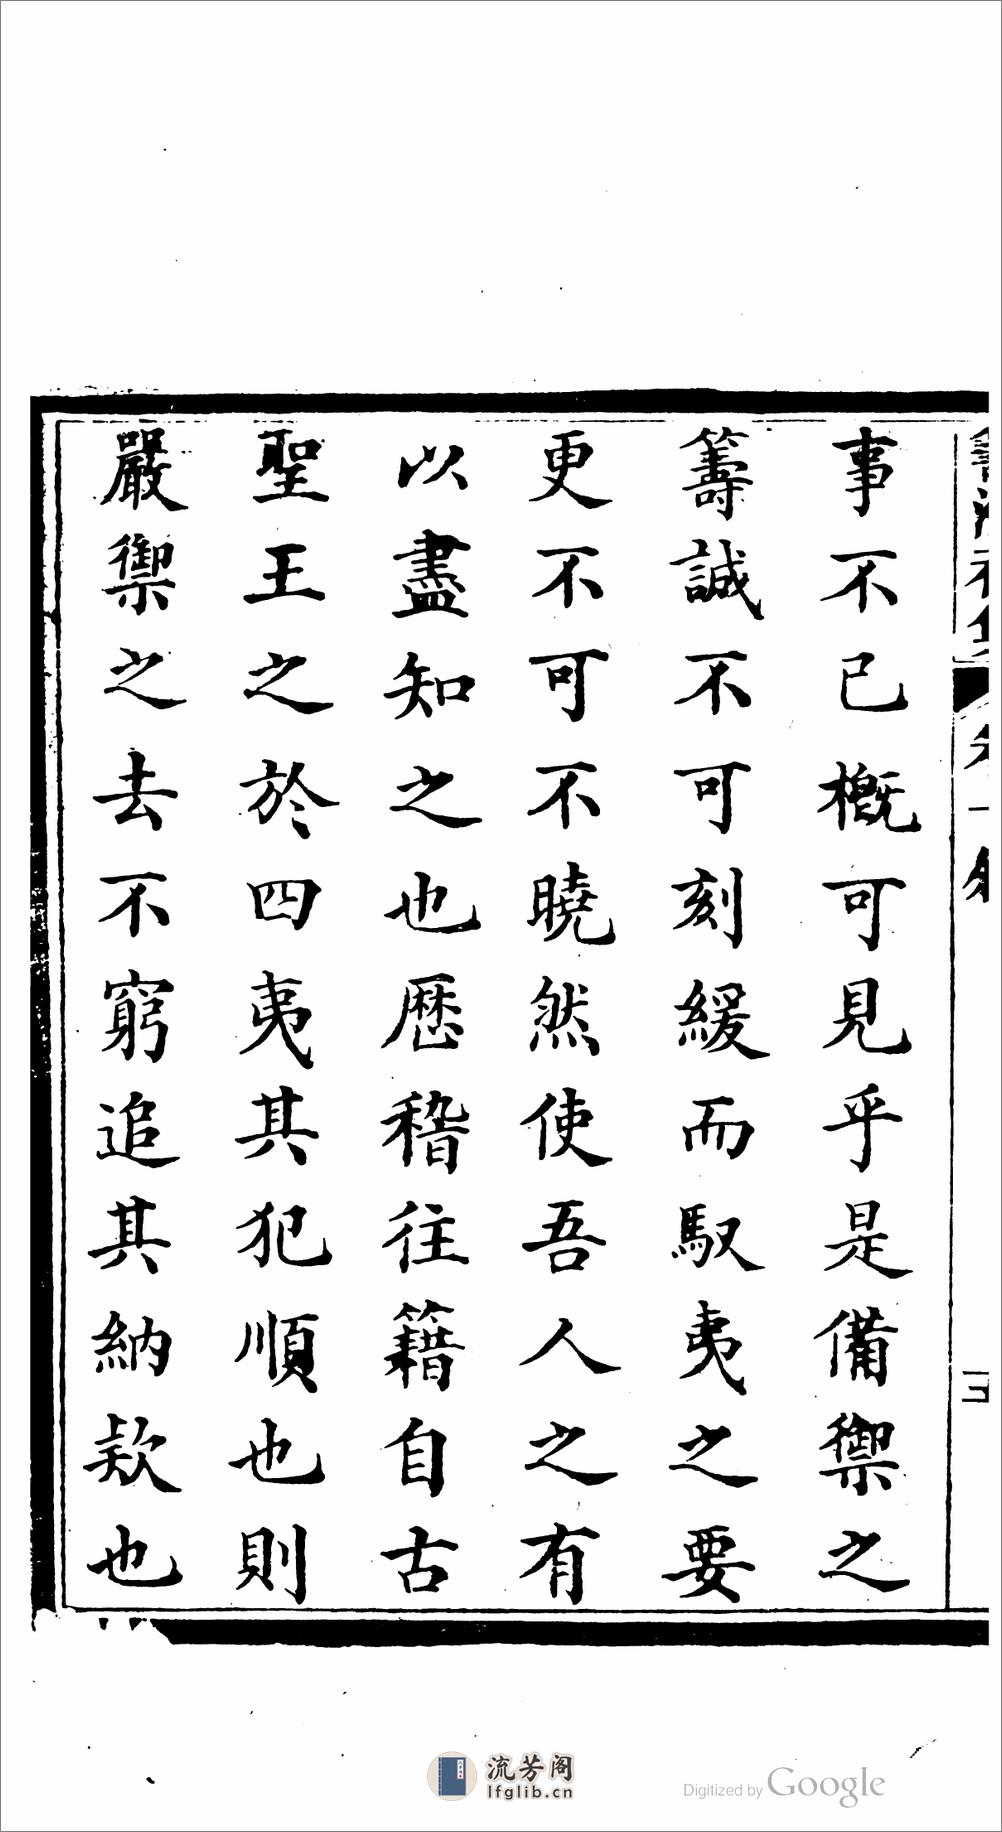 事不已概可見乎是備禦之
籌誠不可刻緩而馭夷之要
更不可不曉然使吾人之有
以盡知之也歷稽往籍自古
聖王之於四夷其犯順也則
嚴禦之去不窮追其納欵也
三
流芳阁
lfglib.cn
Digitized by Google